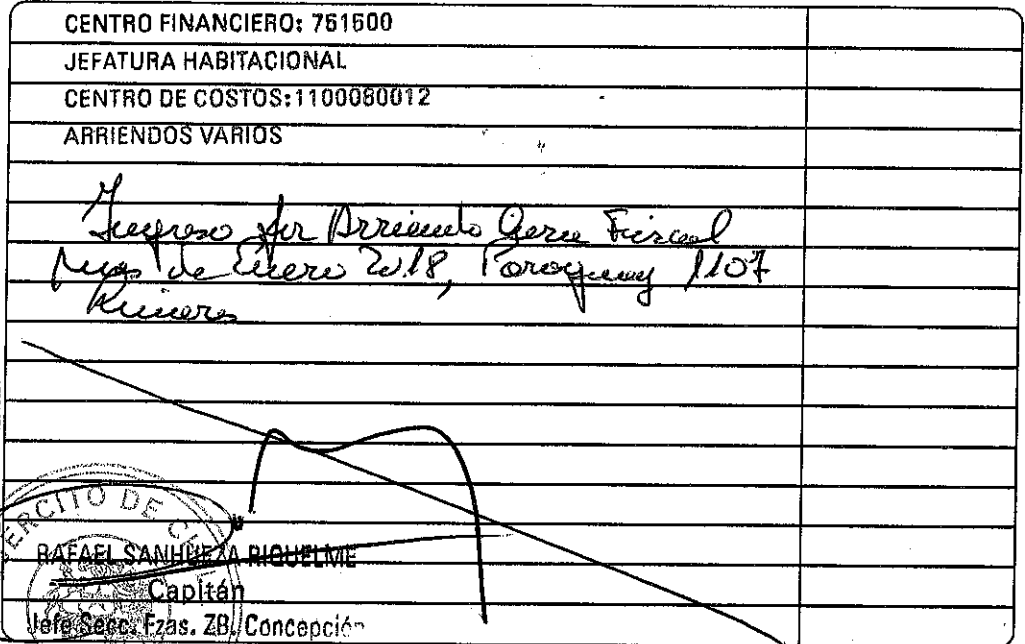 CENTRO FINANCIERO: 751500
JEFATURA HABITACIONAL
CENTRO DE COSTOS:1100080012
ARRIENDOS VARIOS
Ingreso por Arriendo Fiscal
mes de Enero 2018, Paraguay 1107
EJERCITO DE C
RAFAEL SANHUEZA RIQUELME
Capitán
Jefe Secc. Fzas. ZB. Concepción